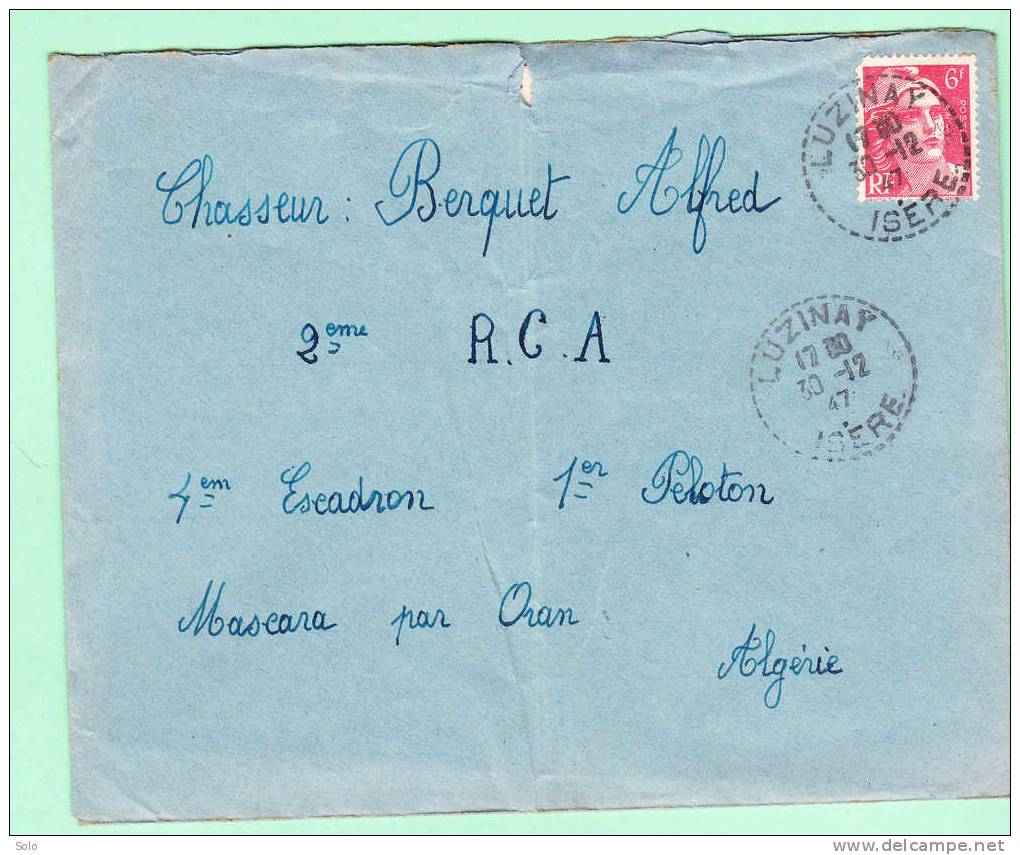 6F
POSTES
RF
LUZINAY
17 00
30 -12
47
ISÈRE
Chasseur : Berquet Alfred
2eme R.C.A
LUZINAY
17 00
30 -12
47
ISÈRE
4em Escadron 1er Peloton
Mascara par Oran
Algérie
Solo
delcampe.net